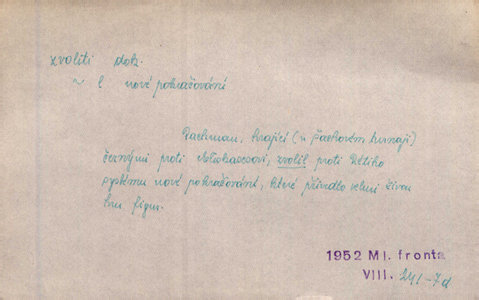 zvoliti dok.
~ l nové pokračování
Pachman, hrající (v šachovém turnaji)
černými proti, zvolil proti Rétiho
systému nové pokračování, které přivedlo velmi živou
hru figur.
1952 Ml. fronta
VIII. 241-7d